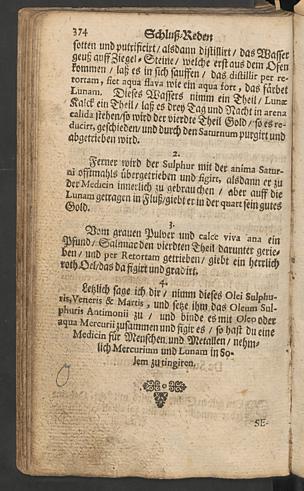 374 Schluß-Reden
sotten und putrificirt / alsdann distillirt / das Wasser
geuß auff Ziegel-Steine / welche erst aus dem Ofen
kommen / laß es in sich sauffen / das distillir per re-
tortam, fiet aqua flava wie ein aqua fort, das färbet
Lunam. Dieses Wassers nimm ein Theil / Lunæ
Kalck ein Theil / laß es drey Tag und Nacht in arena
calida stehen / so wird der vierdte Theil Gold / so es re-
ducirt, geschieden / und durch den Saturnum purgirt und
abgetrieben wird.
2.
Ferner wird der Sulphur mit der anima Satur-
ni offtmahls übergetrieben und figirt, alsdann er zu
der Medicin innerlich zu gebrauchen / aber auff die
Lunam getragen in Fluß / giebt er in der quart sein gutes
Gold.
3.
Vom grauen Pulver und calce viva ana ein
Pfund / Salmiac den vierdten Theil darunter gerie-
ben / und per Retortam getrieben / giebt ein herrlich
roth Oel / das da figirt und gradirt.
4.
Letzlich sage ich dir / nimm dieses Olei Sulphu-
ris, Veneris & Martis, und setze ihm das Oleum Sul-
phuris Antimonii zu / und binde es mit Oleo oder
aqua Mercurii zusammen und figir es / so hast du eine
Medicin für Menschen und Metallen / nehm-
lich Mercurium und Lunam in So-
lem zu tingiren.
SE-